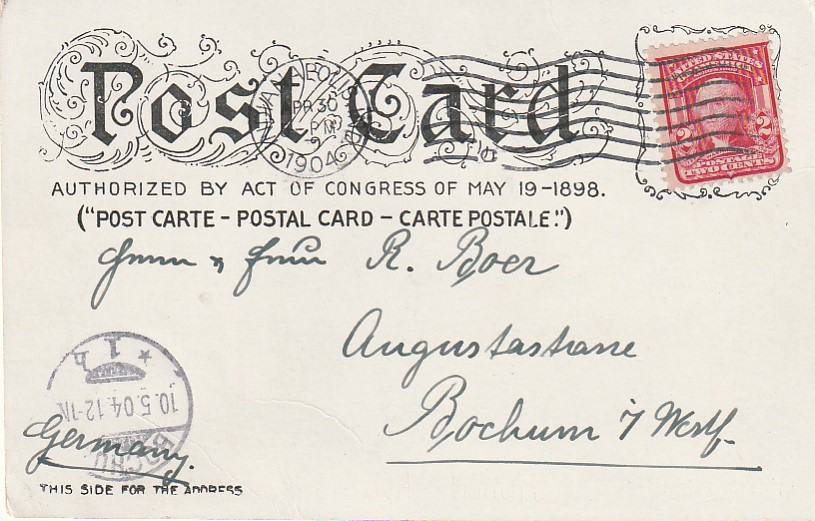 Post Card
APR 30
PM
1904
UNITED STATES
2 2
POSTAGE
TWO CENTS
AUTHORIZED BY ACT OF CONGRESS OF MAY 19-1898.
("POST CARTE - POSTAL CARD - CARTE POSTALE.")
Herrn & Frau R. Boer
Augustastrasse
Bochum i/Westf.
10.5.04.12-1N.
Germany.
THIS SIDE FOR THE ADDRESS